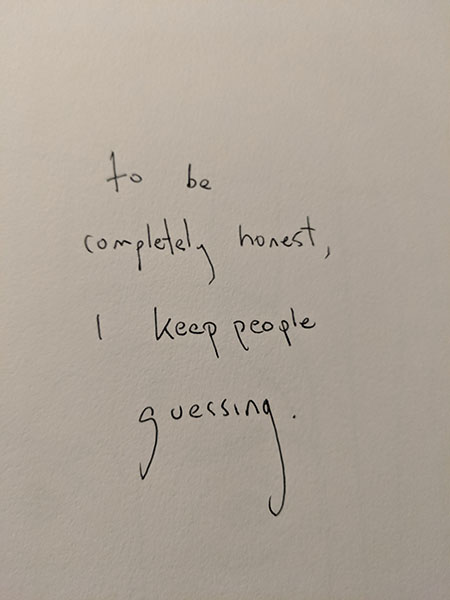 to be
completely honest,
I keep people
guessing.